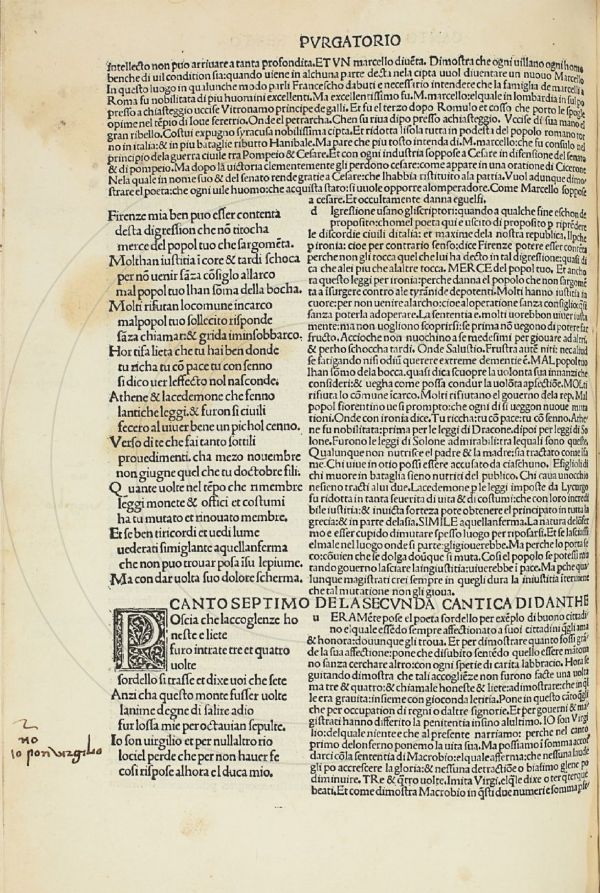 PVRGATORIO
intellecto non puo arrivare a tanta profondita. ET VN marcello diuēta. Dimostra che ogni uillano ogni homo
benche di uil condition sia: quando uiene in alchuna parte desta nela cipta uuol diuentare un nuouo Marcello
In questo luogo in qualunche modo parli Francescho da buti e necessario intendere che la famiglia de marcelli a
Roma fu nobilitata di piu huomini excellenti. Ma excellentissimo fu. M. marcello elquale in lombardia insulpo
presso a chiasteggio uccise Vitronamo principe de galli. Et fu el terzo dopo Romulo et cosso che porto le spoglie
opime nel tēpio di Ioue feretrio. Onde el petrarcha. Chen su riua dipo presso achiasteggio. Vccise di sua mano el
gran ribello. Costui expugno syracusa nobilissima cipta. Et ridotta lisola tutta in podesta del popolo romano tor
no in italia: & in piu battaglie ributto Hanibale. Ma pare che piu tosto intenda di. M. marcello: che fu consolo nel
principio dela guerra ciuile tra Pompeio & Cesare. Et con ogni industria soppose a Cesare in difensione del senato
& di pompeio. Ma dopo la uictoria clementemente gli perdono cesare: come appare in una oratione di Cicerone
Nela quale in nome suo & del senato rende gratie a Cesare: che lhabbia ristituito ala patria. Vuol adunque dimo
strare el poeta: che ogni uile huomo: che acquista stato: si uuole opporre alomperadore. Come Marcello soppose
a cesare. Et occultamente danna eguelfi.
Firenze mia ben puo esser contenta
desta digression che nō titocha
merce del popol tuo che sargomēta.
Molthan iustitia i core & tardi schoca
per nō uenir sāza cōsiglo allarco
mal popol tuo lhan sōma dela bocha.
Molti rifiutan lo comune incarco
mal popol tuo sollecito risponde
sāza chiamar: & grida iminsobbarco.
Hor ti fa lieta che tu hai ben donde
tu richa tu cō pace tu con senno
si dico uer leffecto nol nasconde.
Athene & lacedemone che fenno
lantiche leggi. & furon si ciuili
fecero al uiuer bene un pichol cenno.
Verso di te che fai tanto sottili
prouedimenti. cha mezo nouembre
non giugne quel che tu doctobre fili.
Quante uolte nel tēpo che rimembre
leggi monete & offici et costumi
ha tu mutato et rinouato membre.
Et se ben tiricordi et uedi lume
uederati simiglante aquellanferma
che non puo trouar posa isu lepiume.
Ma con dar uolta suo dolore scherma.
d Igressione usano gli scriptori: quando a qualche fine eschon del
proposito: chome el poeta qui e uscito di proposito p riprēdere
le discordie ciuili ditalia: et maxime dela nostra republica. Ilpche
p ironia: cioe per contrario senso: dice Firenze potere esser contēta
perche non gli rocca quel che lui ha desto in tal digressione: quasi di
ca che alei piu che alaltre tocca. MERCE del popol tuo. Et ancho
ra questo leggi per ironia: perche danna el popolo che non sargomē
ta a insurgere contro ale tyrānide depotenti. Molti hanno iustitia in
cuore: per non uenire alarcho: cioe aloperatione sanza consiglo: q̄si
sanza poterla adoperare. La sententia e. molti uorebbon uiuer iusta
mente: ma non uogliono scoprirsi: se prima nō uegono di potere far
fructo. Accioche non nuochino a se medesimi per giouare ad altri,
& perho schoccha tardi. Onde Salustio. Frustra autē niti: nec aliud
se fatigando nisi odiū querere extreme dementie ē. MAL popol tuo
lhan sōmo dela bocca. quasi dica scuopre la uolonta sua innanzi che
consideri: & uegha come possa condur la uolōta a pfectiōe. MOLti
rifiuta lo cōmune icarco. Molti rifiutano el gouerno dela rep. Mal
popol fiorentino ue si prompto: che ogni di si ueggon nuoue muta
tioni. Onde con ironia dice. Tu riccha: tu cō pace: tu cō senno. Athe
ne fu nobilitata: prima per le leggi di Dracone. di poi per leggi di So
lone. Furono le leggi di Solone admirabili tra lequali sono queste.
Qualunque non nutrisce el padre & la madre: sia tractato come īfa
me. Chi uiue in otio possi essere accusato da ciaschuno. Efiglioli di
chi muore in battaglia sieno nutrici del publico. Chi caua un occhio
ne sieno tracti alui due. Lacedemone p le leggi imposte da Lycurgo
fu ridotta in tanta seuerita di uita & di costumi: che con loro incredi
bile iustitia: & inuicta forteza pote obtenere el principato in tutta la
grecia: & in parte delasia. SIMILE aquellanferma. La natura delōfer
mo e esser cupido dimutare spesso luogo per riposarsi. Et se lasciassi
elmale nel luogo onde si parte: gligiouerebbe. Ma perche lo poeta se
co: cōuien che se dolga doūque si muta. Cosi el popolo se potessi mu
tando gouerno lasciare laingiustitia: uiuerebbe i pace. Ma pche qua
lunque magistrati crei sempre in quegli dura la iniustitia steriuente
che tal mutatione non gli gioua.
CANTO SEPTIMO DE LA SECVNDA CANTICA DI DANTHE
POscia che laccoglenze ho
neste e liete
furo intrate tre et quatro
uolte
sordello si trasse et dixe uoi che sete
Anzi cha questo monte fusser uolte
lanime degne di salire adio
fur lossa mie per octauian sepulte.
Io son uirgilio et per nullaltro rio
lo ciel perde che per non hauer fe
cosi rispose alhora el duca mio.
u ERAMēte pose el poeta sordello per exēplo di buono cittadi
no elquale essēdo sempre affectionato a suoi cittadini q̄gli ama
& honora: douunque gli troua. Et per dimostrare quanto fossi grā
de la sua affectione: pone che disubito sentēdo quello essere mātoua
no sanza cerchare altro: con ogni spetie di carita labbracio. Hora se
guitando dimostra che tali accoglēze non furono facte una uolta
ma tre & quatro: & chiamale honeste & liete: adimostrare: che in q̄l
le era grauita: insieme con gioconda letitia. Pone in questo catō q̄gli
che per occupation di regni o daltre signorie. Et per gouerni & ma
gistrati hanno differito la penitentia insino alultimo. IO son Virgi
lio: delquale niente che al presente narriamo: perche nel canto
primo delonferno ponemo la uita sua. Ma possiamo i somma accor
darci cō la sententia di Macrobio: elquale afferma: che nessuna laude
gli po accrescere la gloria: & nessuna detractiōe o biasimo glene po
diminuire. TRe & q̄tro uolte. Imita Virgi. elq̄le dixe o ter q̄terque
beati. Et come dimostra Macrobio in q̄sti due numeri e somma pfec
no
Io pon uirgilio